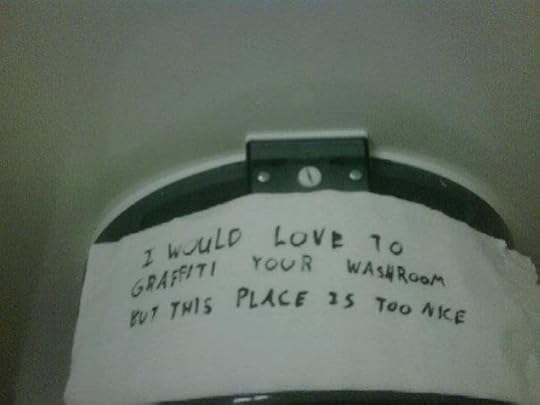 I WOULD LOVE TO
GRAFFITI YOUR WASHROOM
BUT THIS PLACE IS TOO NICE